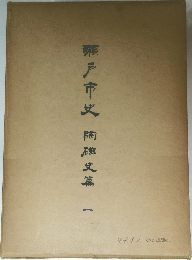 瀬戸市史 陶磁史篇 一